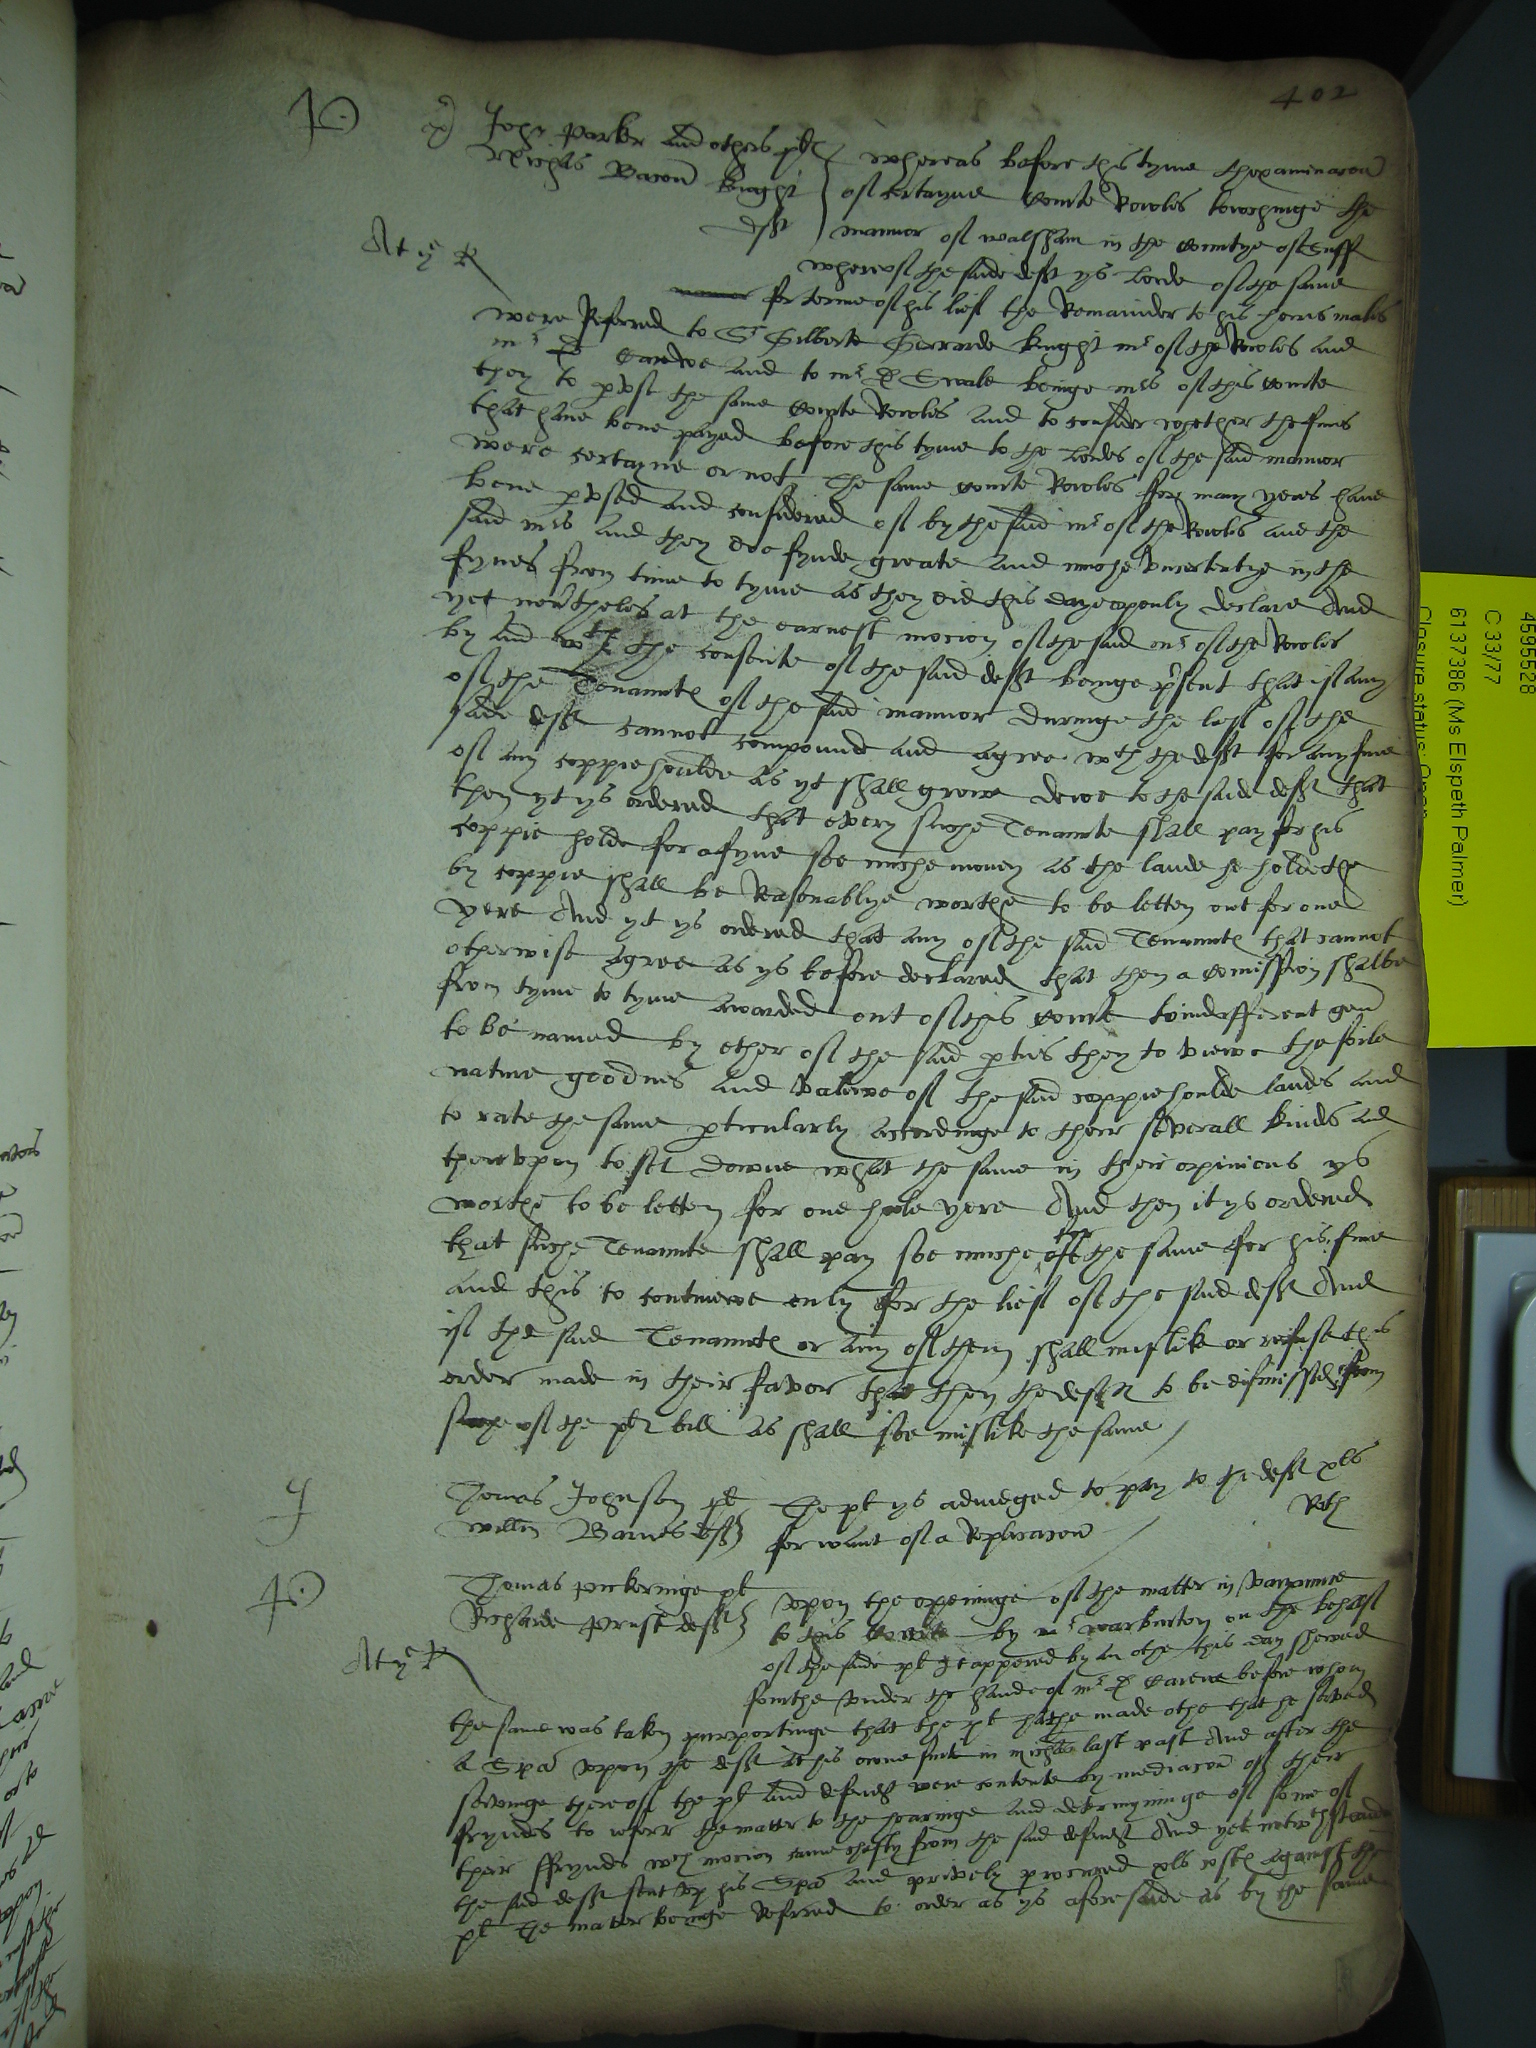 402
P
John Parker and others pltes
Nicholas Bacon knight
deft
whereas before this tyme thexaminacon
of certayne Courte Rowles towchinge the
mannor of walsham in the Countye of Suff
At ye R
wherof the saide deft ys lorde of the same
for terme of his lief the Remainder to his heires males
were Referred to Sr Gilberte Gerrarde knight mr of the Rowles and
mr D Carewe and to mr D Seale beinge mrs of this courte
they to pvse the same Courte Rowles and to consider whether the fines
that have bene payed before this tyme to the lordes of the said mannor
were certayne or not, The same courte Rowles for many yeres have
bene pvsed and considered of by the said mr of the Rowles and the
said mrs and they doe fynde greate and muche vncertentye in the
fynes from time to tyme as they did this daye openly declare And
yet nevertheles at the earnest mocion of the said mr of the Rowles
by and wth the consente of the said deft beinge psent that if any
of the Tenauntes of the said mannor duringe the lief of the
saide deft cannot compounde and agree wth the deft for any fine
of any coppie houlde as yt shall growe dewe to the saide deft that
then yt ys ordered that every suche Tenaunte shall pay for his
coppie holde for a fyne soe muche money as the lande he holdethe
by coppie shall be Reasonablye worthe to be letten out for one
yere And yt ys ordered that any of the said Tenauntes that cannot
otherwise agree as ys before declared that then a comission shalbe
from tyme to tyme awarded out of this courte to indifferent gen
to be named by ether of the said pties they to viewe the soile
nature goodnes and valewe of the said coppiehoulde landes and
to rate the same pticularly accordinge to their severall kindes and
thervpon to set downe what the same in their opinions ys
worthe to be letten for one hole yere And then it ys ordered
that suche Tenaunte shall pay soe muche for the same for his fine
and this to contynewe only for the lief of the said deft And
if the said Tenauntes or any of them shall mislike or refuse this
order made in their favor that then the deft to be dismissed from
suche of the pltes bill as shall soe mislike the same
J
Thomas Johnson pl
Willm Barnes deft
The pl ys adiudged to pay to the deft xls
for want of a Replicacon
P
Thomas Pickeringe pl
Richarde deft
At ye R
vpon the openinge of the matter in variaunce
to this Courte by mr warburton on the behalf
of the saide pl It appered by an othe this day shewed
fourthe vnder the hande of mr D Carewe before whom
the same was taken purportinge that the pl hathe made othe that he served
a Spa vpon the deft at his owne sute in michas last past And after the
servinge therof the pl and defendt were contente by mediacon of their
fryndes to referr the matter to the hearinge and determyninge of some of
their ffryndes wch mocion came chefly from the said defendt And yet notwthstandinge
the said deft sent vp his Spa and prively procured xls costes against the
pl the matter beinge Referred to order as ys aforesaide as by the same
4595528
C 33/77
6137386 (Ms Elspeth Palmer)
Closure status: Open